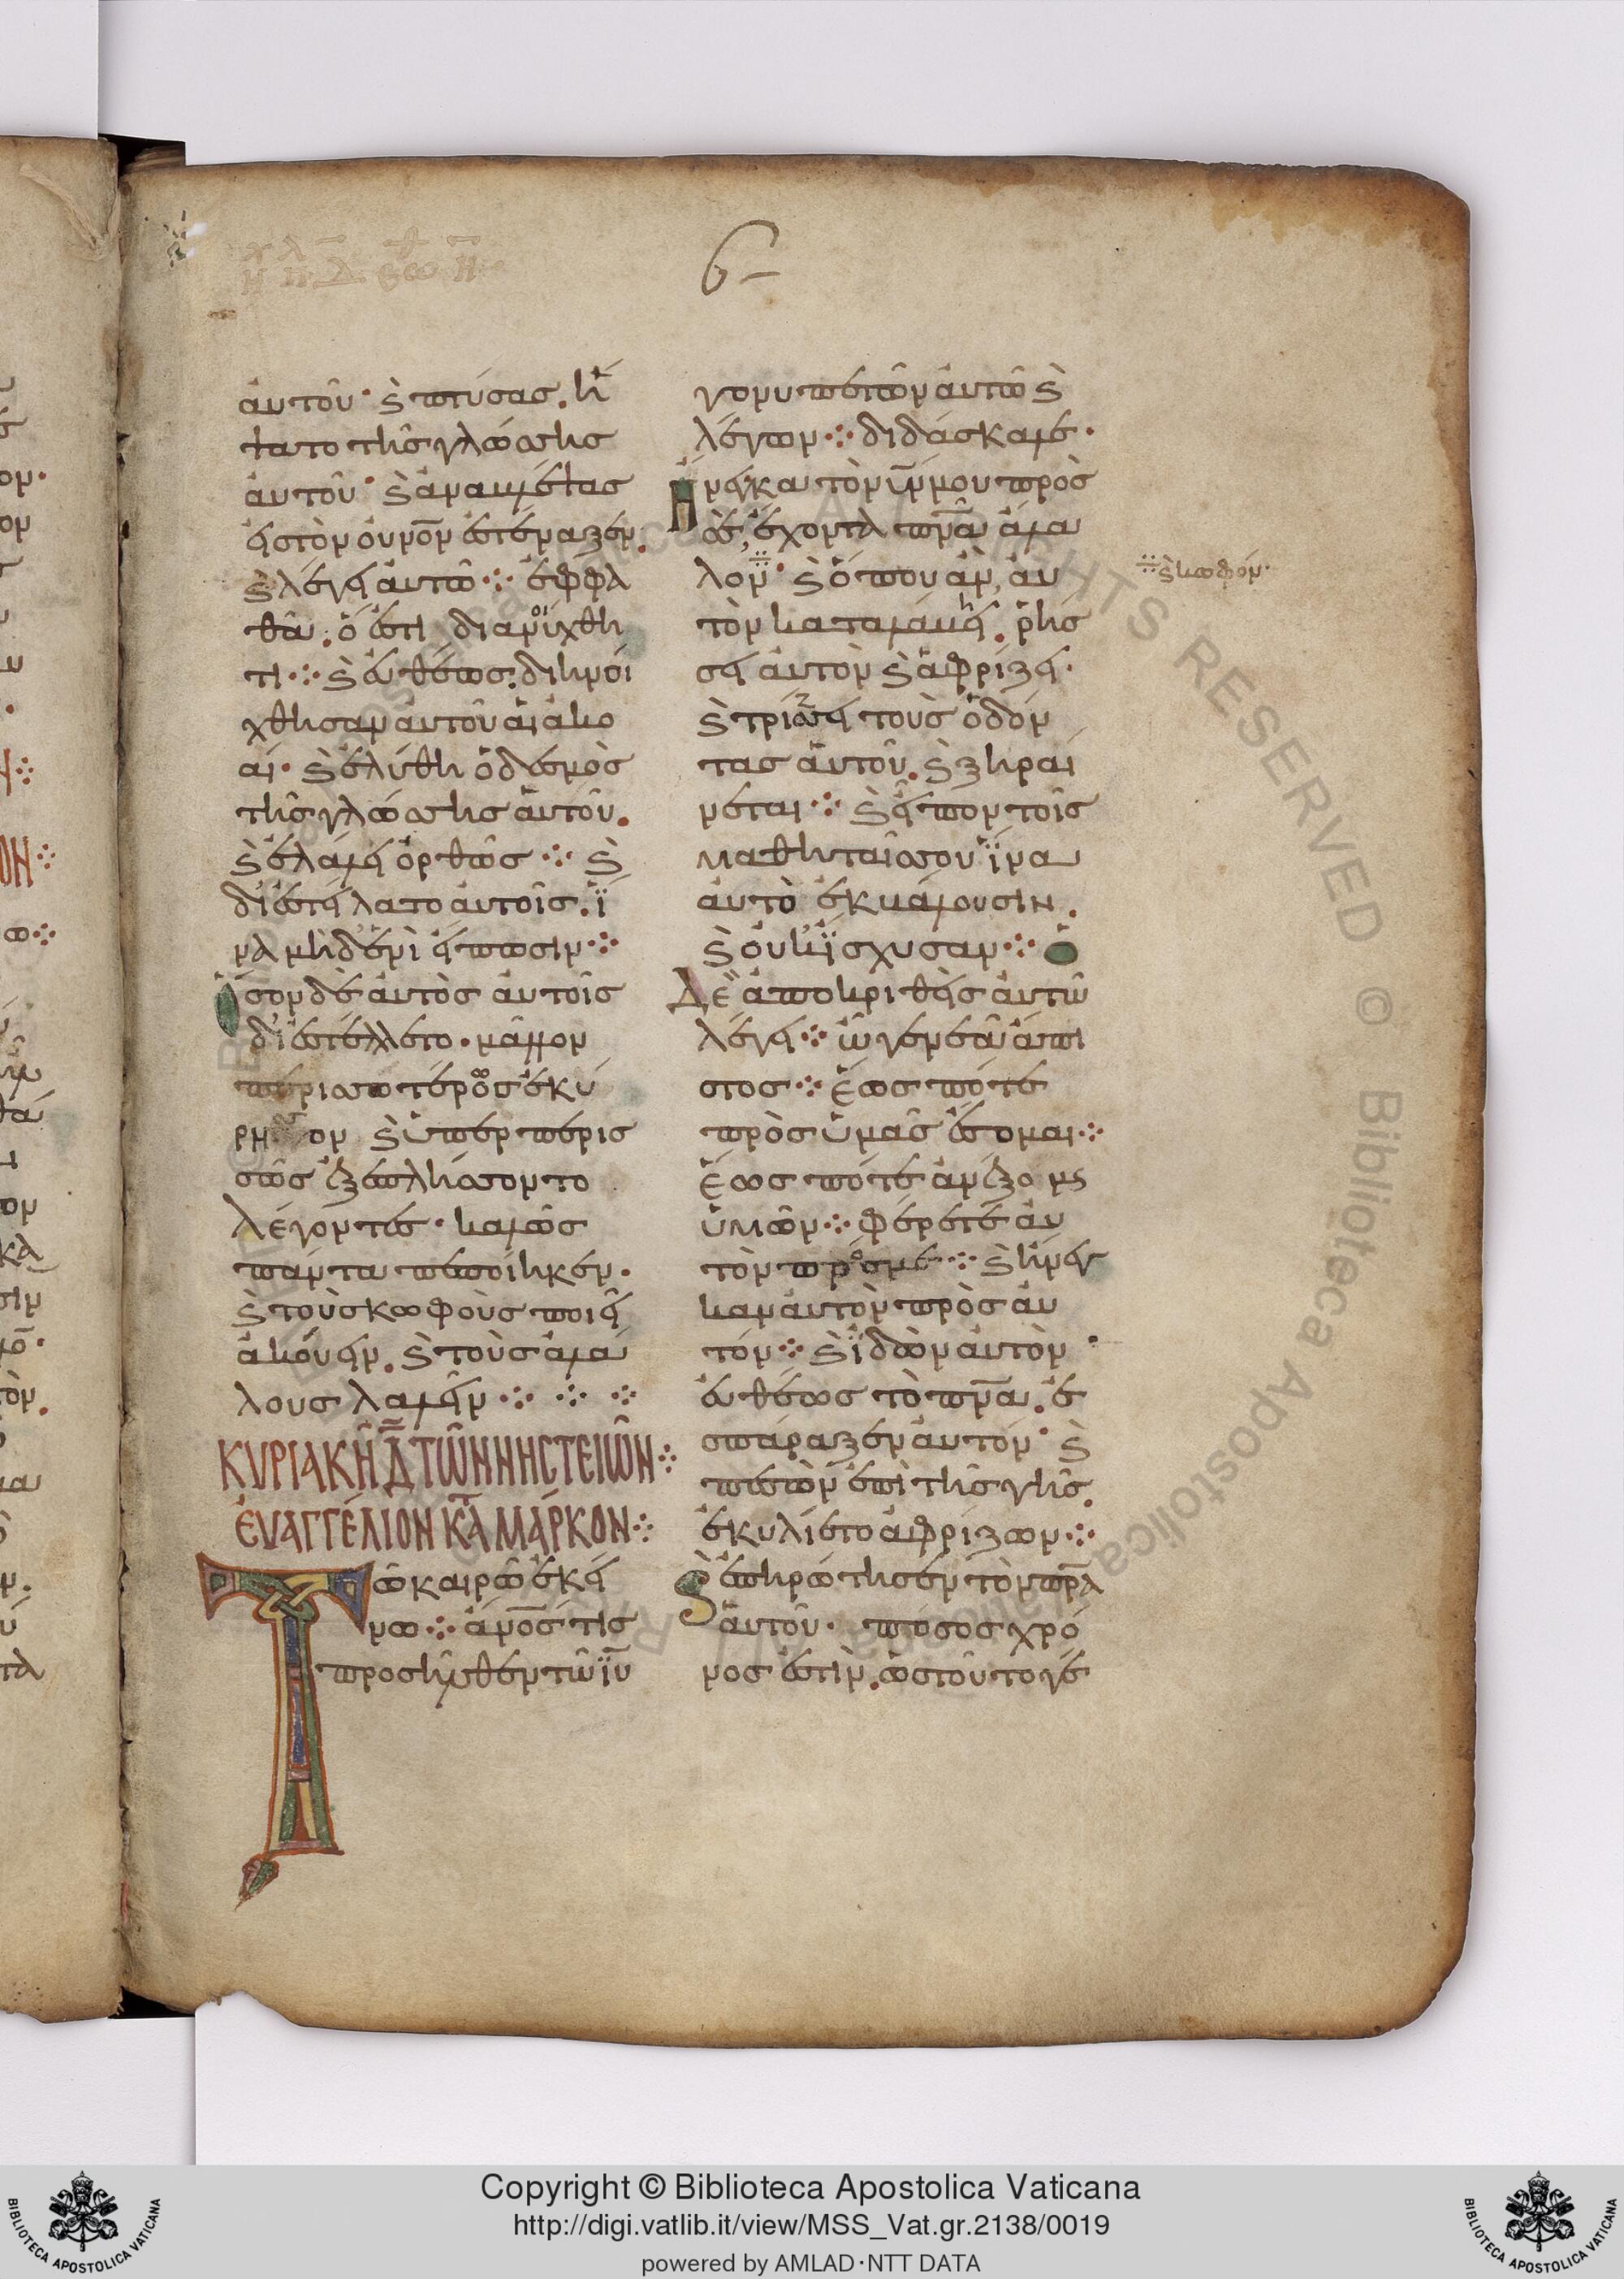 6
αὐτοῦ· ϗ πτύσας. ἥ
ψατο τῆς γλώσσης
αὐτοῦ· ϗ ἀναβλέψας
εἰς τὸν οὐνὸν ἐστέναξεν.
ϗ λέγει αὐτῶ· ἐφφα
θά. ὅ ἐστι διανοίχθη
τι· ϗ εὐθέως. διηνοί
χθησαν αὐτοῦ αἱ ἀκο
αί· ϗ ἐλύθη ὁ δεσμὸς
τῆς γλώσσης αὐτοῦ.
ϗ ἐλάλει ὀρθῶς· ϗ
διεστείλατο αὐτοῖς. ἵ
να μηδενὶ εἴπωσιν·
ὅσον δὲ αὐτὸς αὐτοῖς
διεστέλλετο· μᾶλλον
περισσοτέρως ἐκύ
ρησσον ϗ ὑπερπερις
σῶς ἐξεπλήσσοντο
λέγοντες· καλῶς
πάντα πεποίηκεν·
ϗ τοὺς κωφοὺς ποιεῖ
ἀκούειν. ϗ τοὺς ἀλά
λους λαλεῖν·
ΚΥΡΙΑΚΗ Δ ΤΩΝ ΝΗΣΤΕΙΩΝ
ΕΥΑΓΓΕΛΙΟΝ ΚΑΤΑ ΜΑΡΚΟΝ
Τῶ καιρῶ ἐκεί
νω· ἄνος τις
προσῆλθεν τῶ ιυ
γονυπετῶν αὐτῶ ϗ
λέγων· διδάσκαλε·
ἤνεγκα τὸν υν μου πρὸς
σέ, ἔχοντα πνα ἄλα
λον· ϗ ὅπου ἂν αὐ
ϗ κωφόν·
τὸν καταλάβη. ῥήσ
σει αὐτὸν ϗ ἀφρίζει·
ϗ τρίζει τοὺς ὀδόν
τας αὐτοῦ. ϗ ξηραί
νεται· ϗ εἶπον τοῖς
μαθηταῖς σου ἵνα
αὐτὸ ἐκβάλουσιν.
ϗ οὐκ ἴσχυσαν· ὁ
δὲ ἀποκριθεὶς αὐτῶ
λέγει· ὦ γενεὰ ἄπι
στος· ἕως πότε
πρὸς ὑμᾶς ἔσομαι·
ἕως πότε ἀνέξομαι
ὑμῶν· φέρετε αὐ
τὸν πρός με· ϗ ἤνεγ
καν αὐτὸν πρὸς αὐ
τόν· ϗ ἰδὼν αὐτὸν
εὐθέως τὸ πνα. ἐ
σπάραξεν αὐτόν· ϗ
πεσὼν ἐπὶ τῆς γῆς.
ἐκυλίετο ἀφρίζων·
ϗ ἐπηρώτησεν τὸν πρα
αὐτοῦ· πόσος χρό
νος ἐστὶν. ὡς τοῦτο γέ
Copyright © Biblioteca Apostolica Vaticana
http://digi.vatlib.it/view/MSS_Vat.gr.2138/0019
powered by AMLAD·NTT DATA
BIBLIOTECA APOSTOLICA VATICANA
BIBLIOTECA APOSTOLICA VATICANA